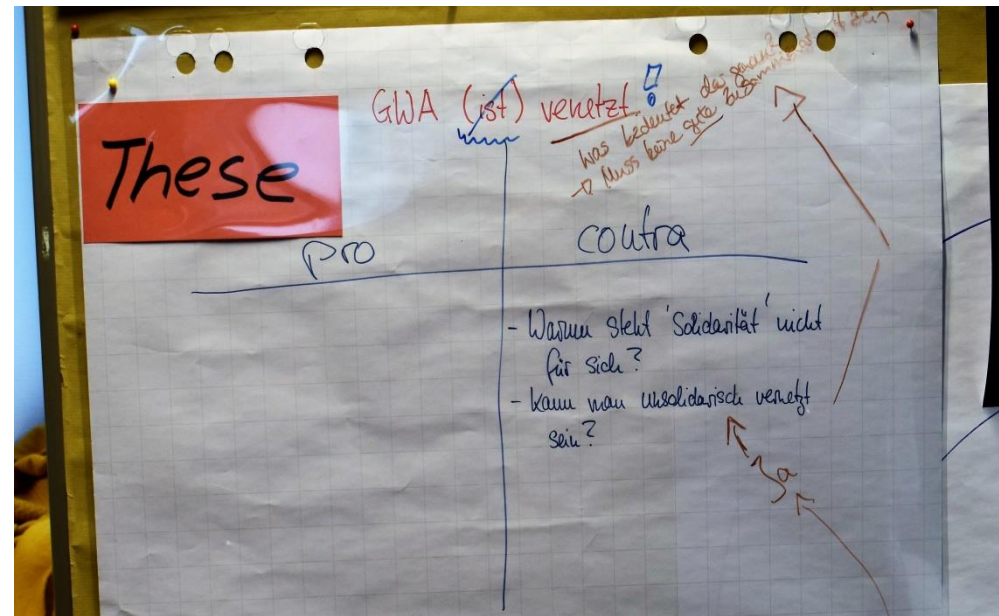 These
GWA (ist) vernetzt!
Was bedeutet das genau?
→ Muss keine gute Zusammenarbeit sein
pro
contra
- Warum steht 'Solidarität' nicht
für sich?
- kann man unsolidarisch vernetzt
sein?
Ja